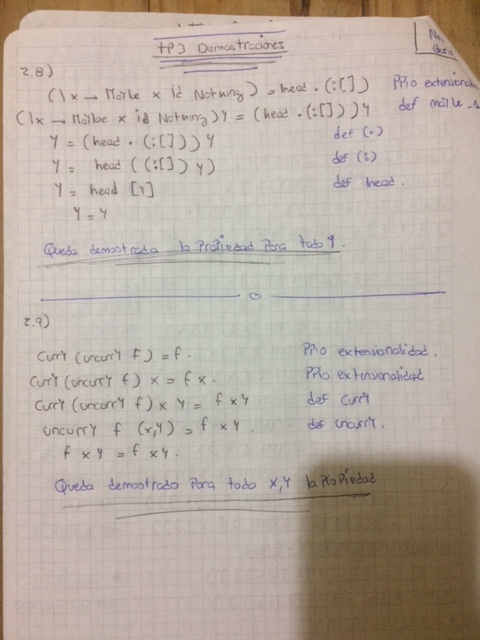 TP5 Demostraciones
2.8)
(\x → Maybe x id Nothing) = head . (:[]) PPio extensional
(\x → Maybe x id Nothing) y = (head . (:[])) y
y = (head . (:[])) y def (.)
y = head ((:[]) y) def (:)
y = head [y] def head.
y = y
Queda demostrada la propiedad para todo y.
2.9)
Curry (uncurry f) = f. PPio extensionalidad.
Curry (uncurry f) x = f x. PPio extensionalidad
Curry (uncurry f) x y = f x y def curry
uncurry f (x,y) = f x y def uncurry.
f x y = f x y.
Queda demostrado para todo x,y la propiedad